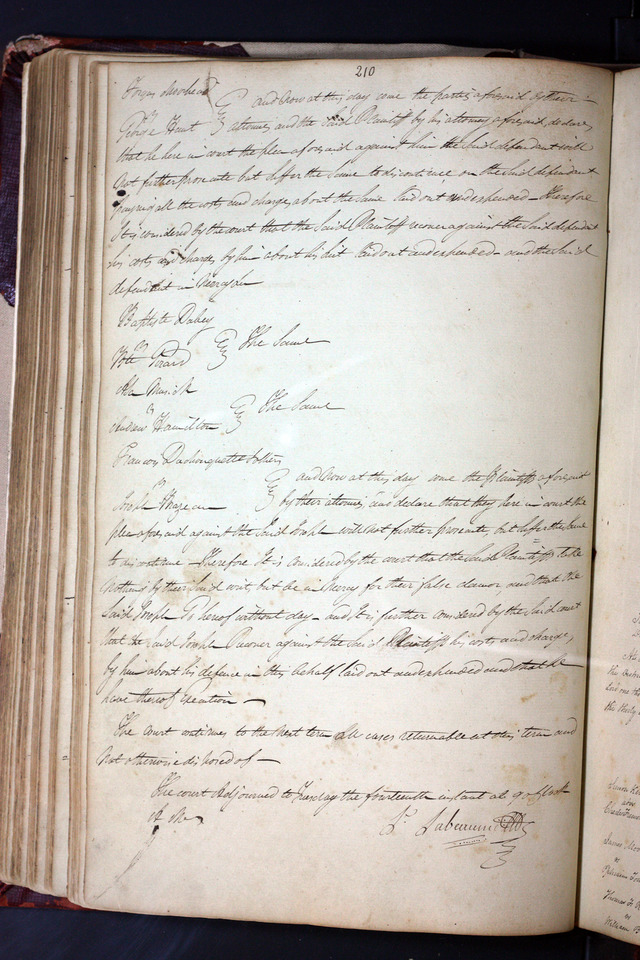 210
Fergus Morhead
vs
George Hunt
and now at this day come the parties aforesaid by their
attornies and the said Plaintiff by his attorney aforesaid, declares
that he here in court the plea aforesaid against him the said defendant will
not further prosecute but suffer the same to discontinue on the said defendant
paying all the costs and charges about the same laid out and expended - Therefore
It is considered by the court that the said Plaintiff recover against the said defendant
his costs and charges by him about his suit laid out and expended - and the said
defendant in mercy &c
Baptiste
vs
The Same
Abr Musick
vs
Andrew Hamilton
The Same
Francois & others
vs
Joseph
and now at this day come the Plaintiffs aforesaid
by their attornies, and declare that they here in court the
plea aforesaid against the said Joseph will not further prosecute, but suffer the same
to discontinue - Therefore It is considered by the court that the said Plaintiffs take
nothing by their said writ, but be in mercy for their false clamor, and that the
said Joseph go hereof without day - and It is further considered by the said court
that the said Joseph Recover against the said Plaintiffs his costs and charges,
by him about his defence in this behalf laid out and expended and that he
have thereof Execution -
The court continues to the next term all cases returnable at this term and
not otherwise disposed of -
The court Adjourned to Tuesday the fourteenth instant at 9 o'clock
Labeaume